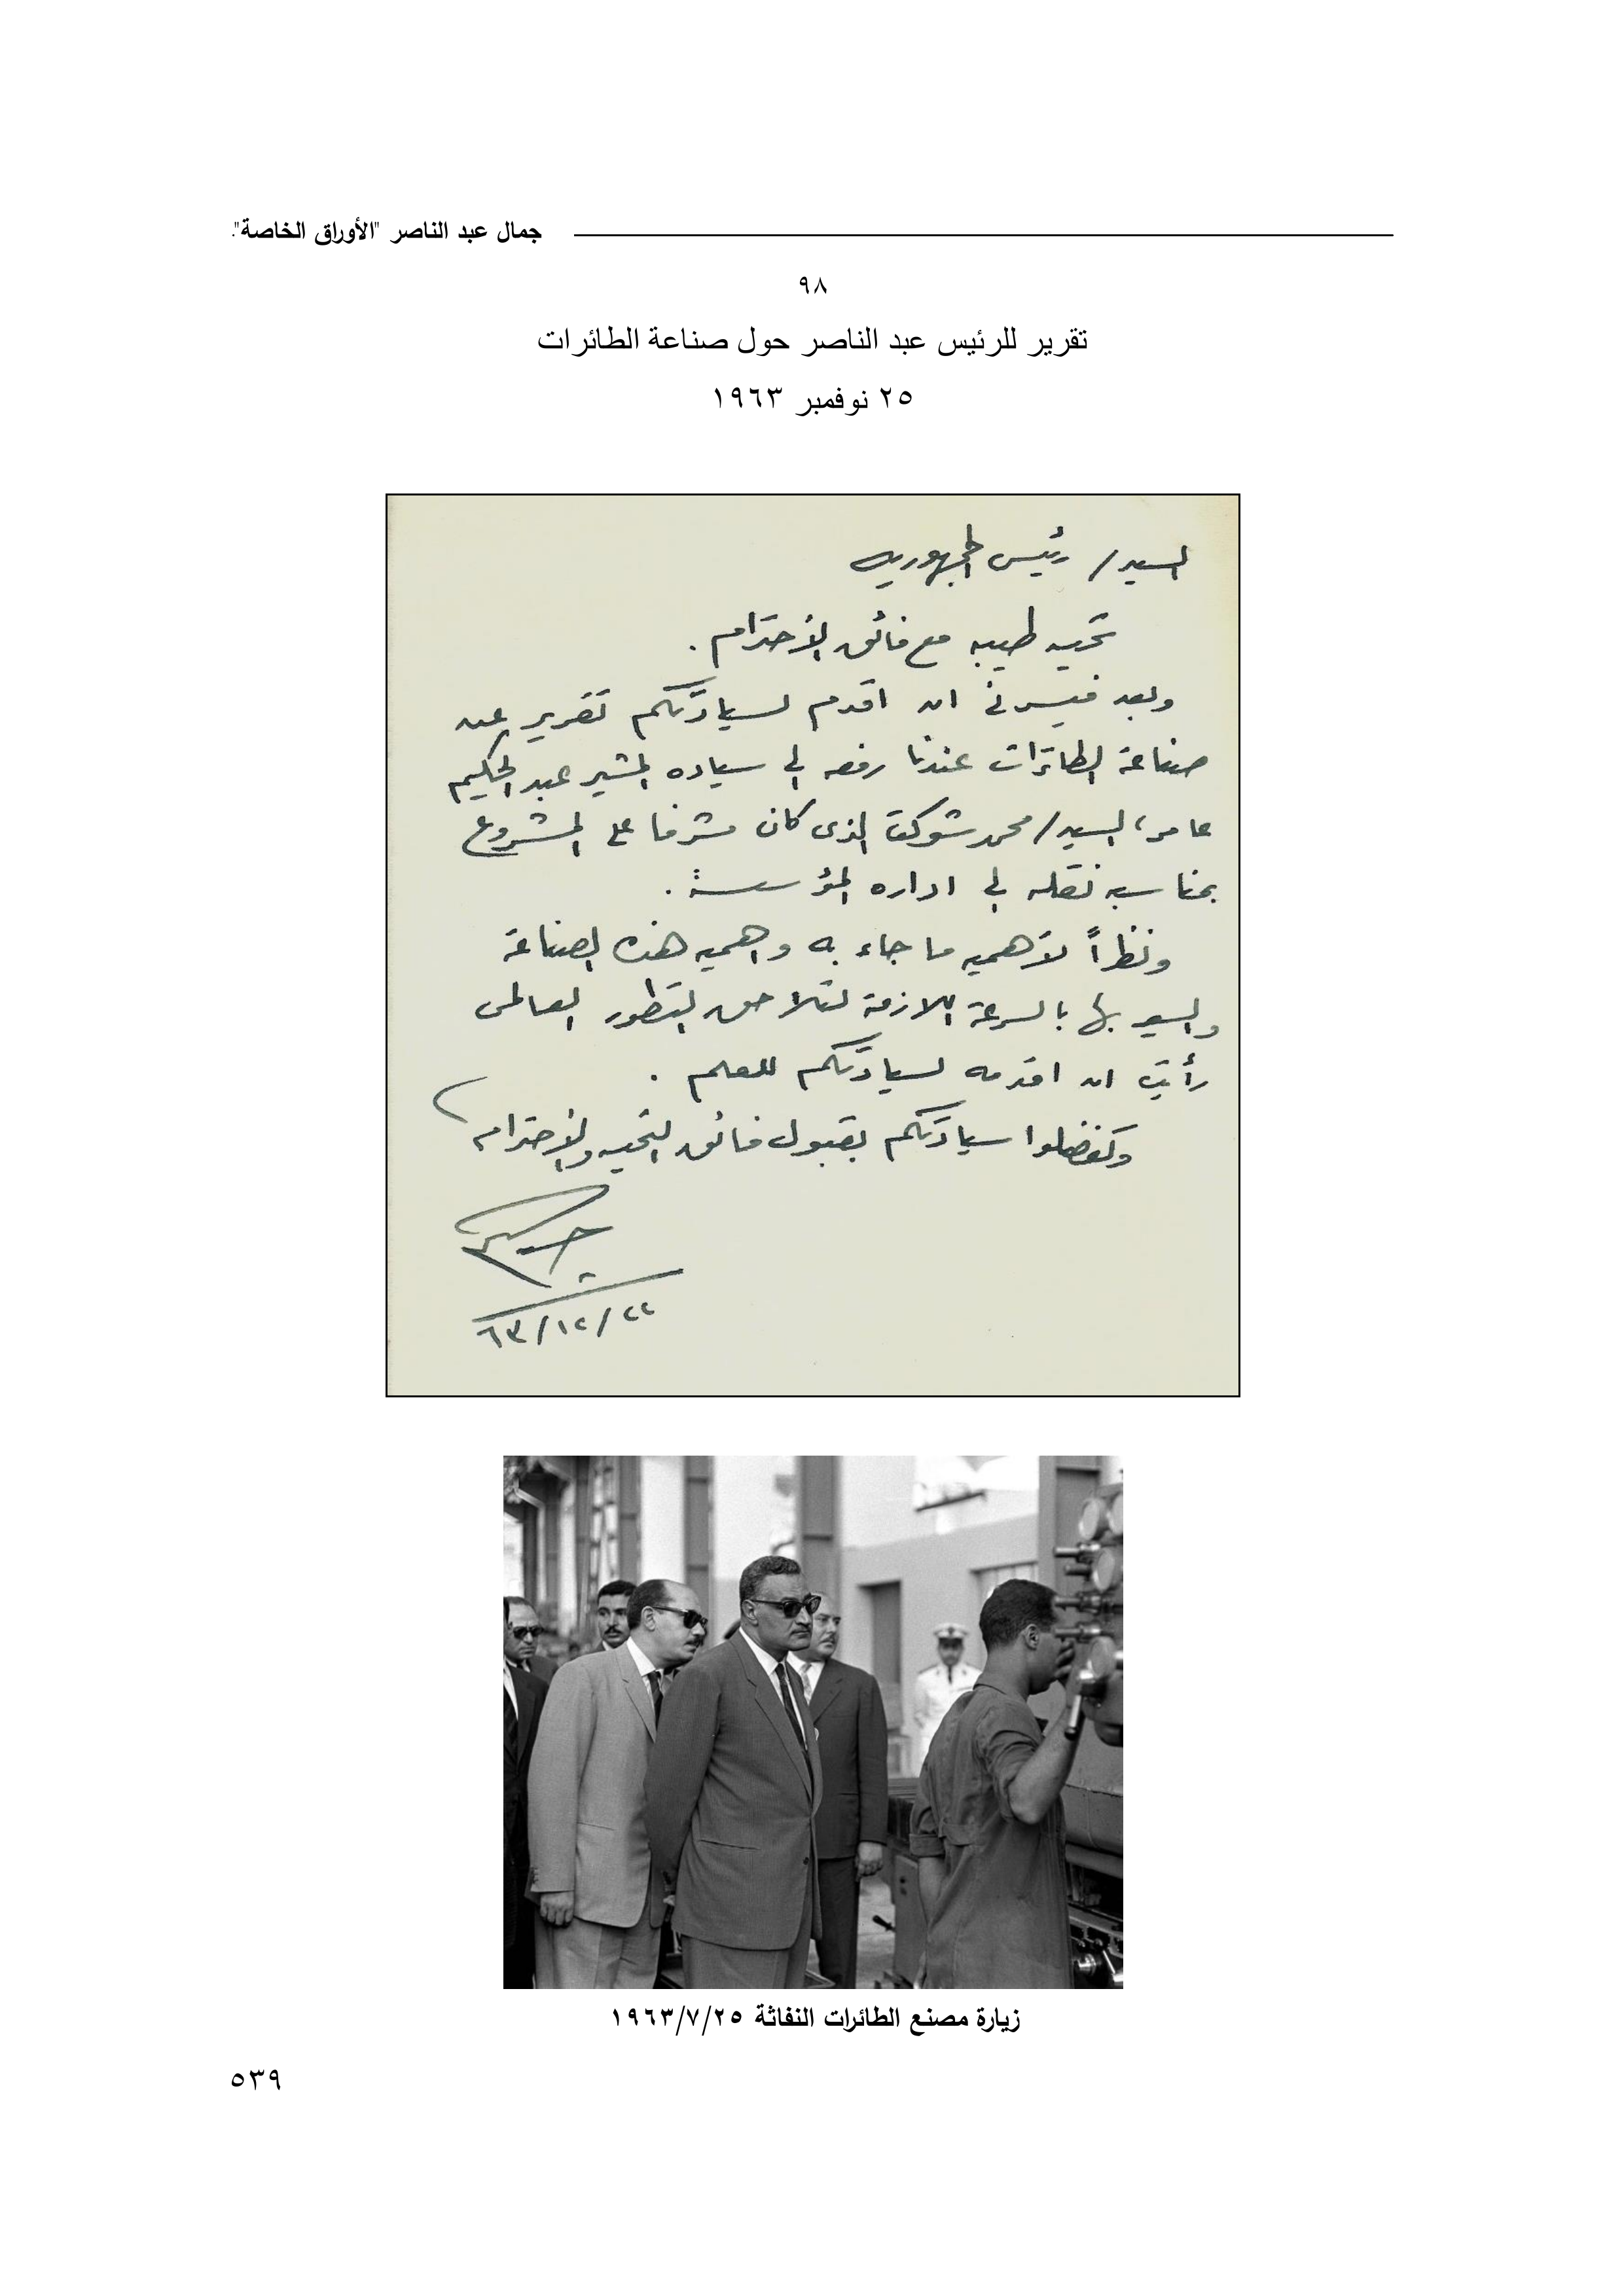 جمال عبد الناصر "الأوراق الخاصة".
٩٨
تقرير للرئيس عبد الناصر حول صناعة الطائرات
٢٥ نوفمبر ١٩٦٣
السيد/ رئيس الجمهوريه
تحيه طيبه مع فائق الأحترام .
وبعد فيسرنى ان اقدم لسيادتكم تقرير عن
صناعة الطائرات عندنا رفعه الى سياده المشير عبد الحكيم
عامر، السيد/ محمد شوكت الذى كان مشرفا على المشروع
بمناسبه نقله الى اداره المؤسسة .
ونظراً لأهميه ما جاء به واهميه هذه الصناعة
والسير بها بالسرعة اللازمة لتلاحق التطور العالمى
رأيت ان اقدمه لسيادتكم للعلم .
وتفضلوا سيادتكم بقبول فائق التحيه والأحترام
٦٣/١٢/٢٢
زيارة مصنع الطائرات النفاثة ١٩٦٣/٧/٢٥
٥٣٩